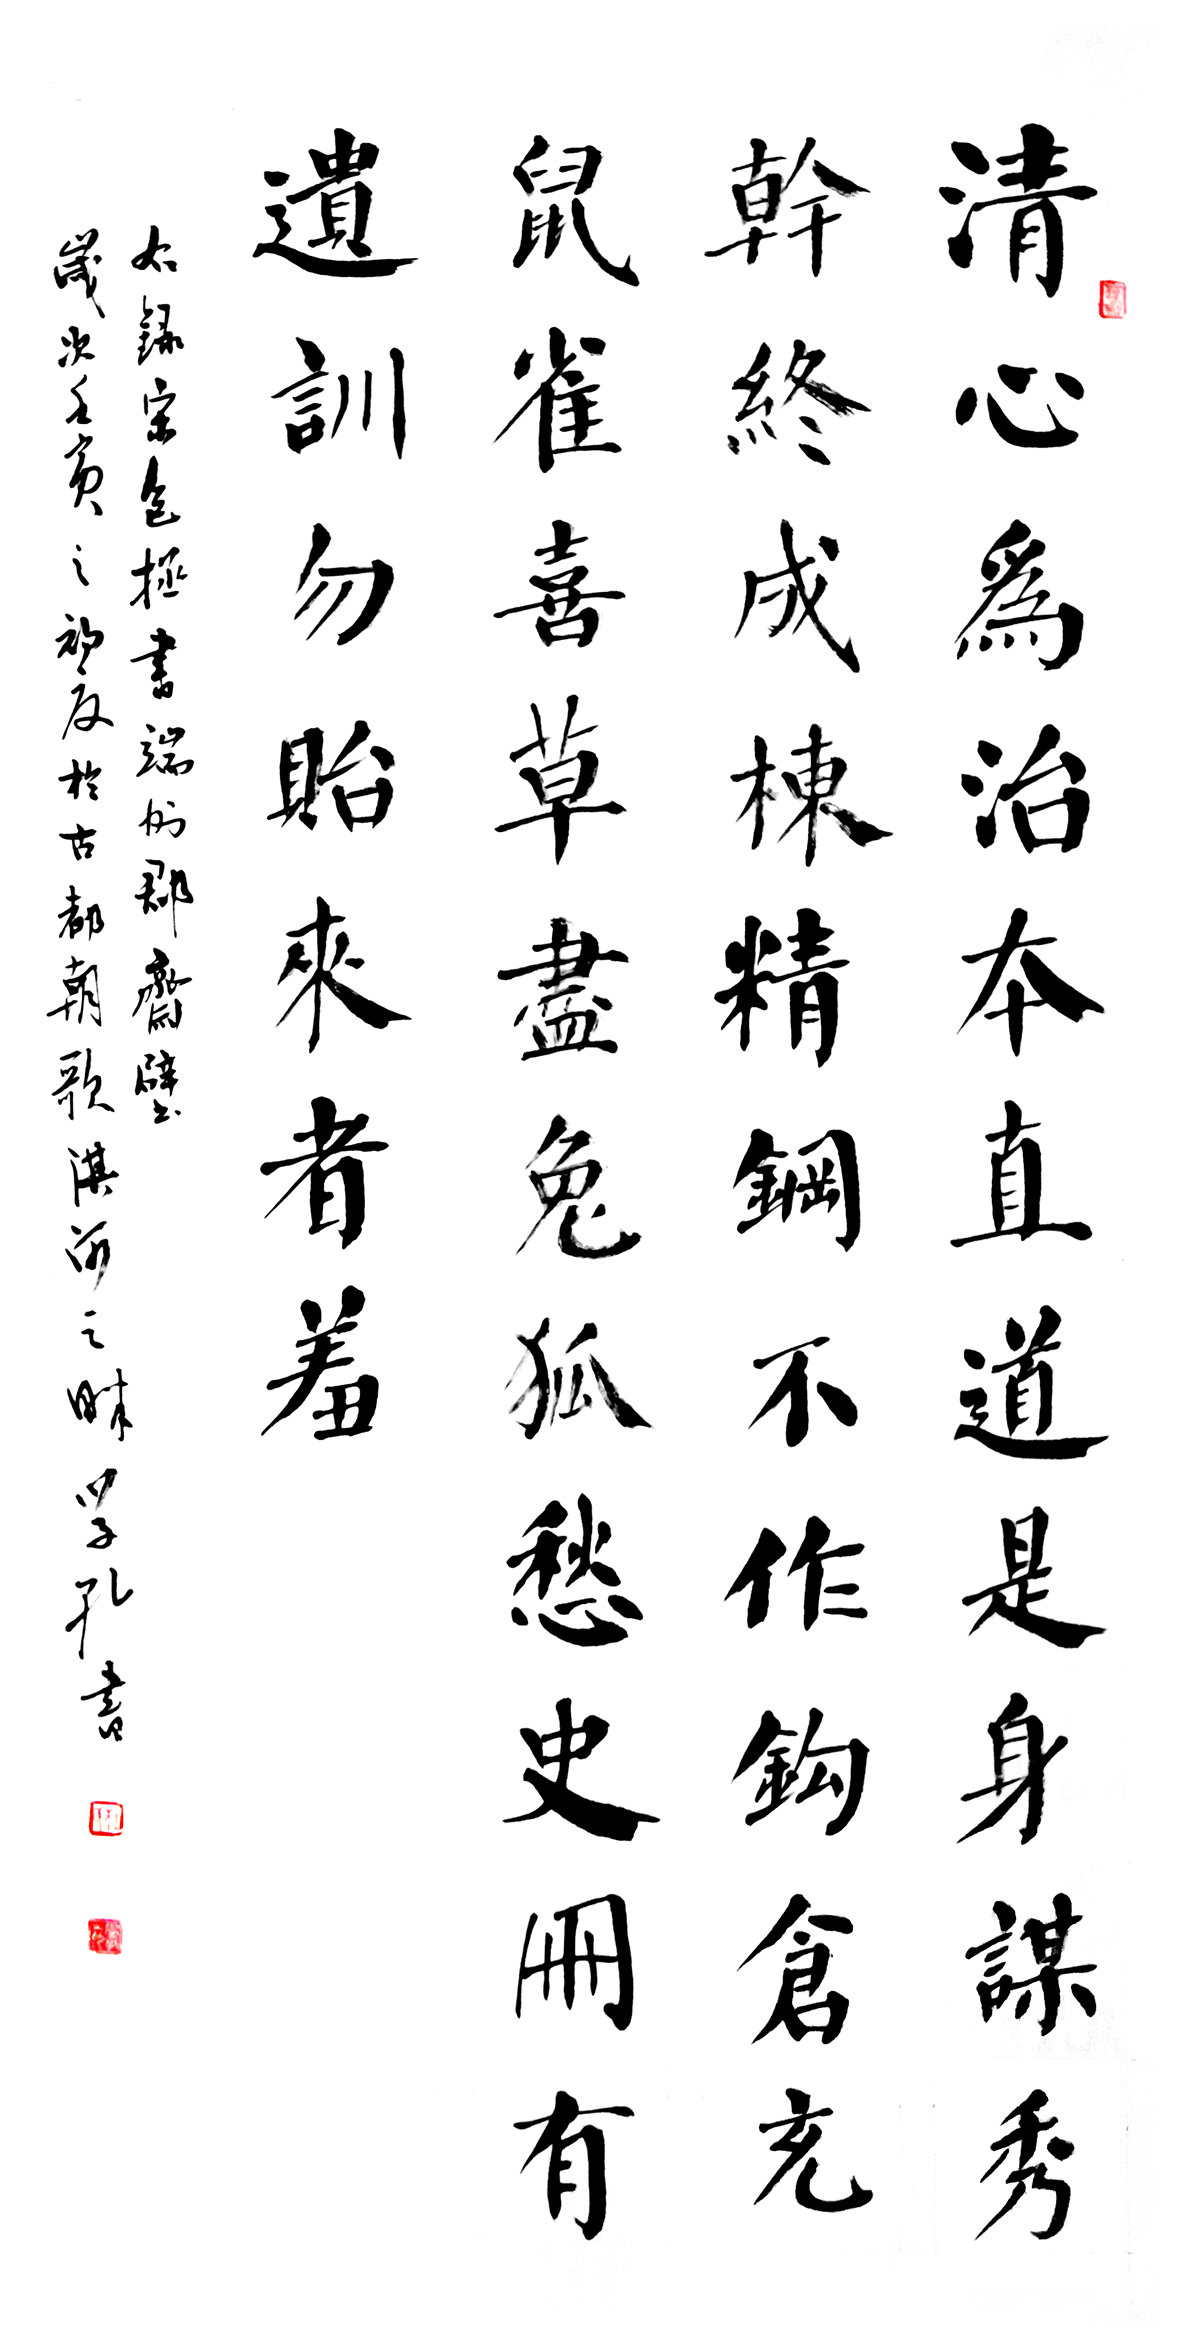 清心爲治本直道是身謀秀
幹終成棟精鋼不作鈎倉充
鼠雀喜草盡兔狐愁史冊有
遺訓勿貽來者羞
右録宋包拯書端州郡齋壁
歲次壬寅之初夏於古都朝歌淇河之畔學孔書